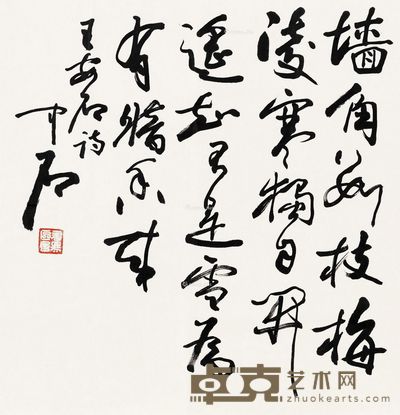 墙角数枝梅
凌寒独自开
遥知不是雪为
有暗香来
王安石诗
中石
卓克艺术网
www.zhuokearts.com